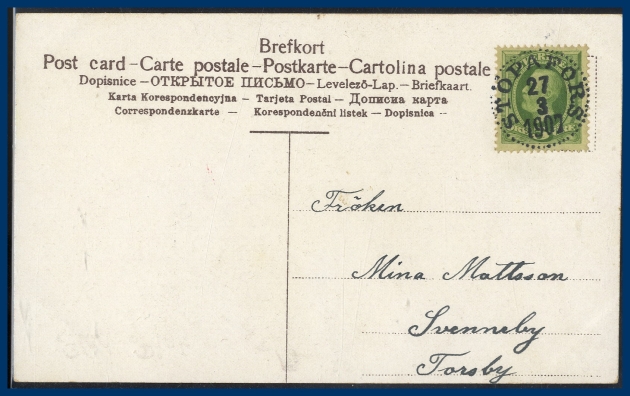 Brefkort
Post card – Carte postale – Postkarte – Cartolina postale
Dopisnice – ОТКРЫТОЕ ПИСЬМО – Levelező-Lap. – Briefkaart.
Karta Korespondencyjna – Tarjeta Postal – Дописна карта
Correspondenzkarte – Korespondenční listek – Dopisnica –
STOPAFORS
27
3
1907
Fröken
Mina Mattsson
Svenneby
Torsby